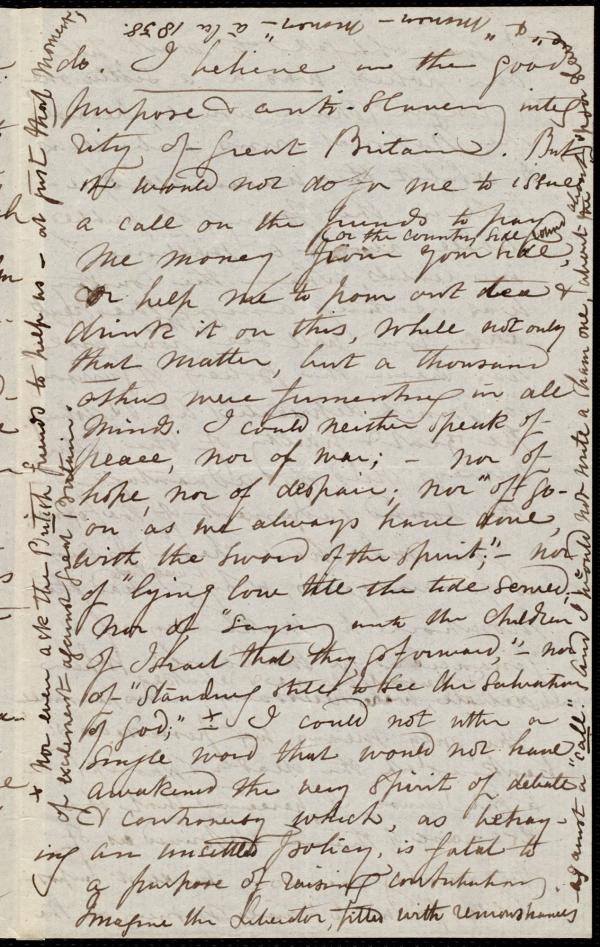 do. I believe in the good
purpose & anti-slavery integ
rity of Great Britain. But
it would not do for me to issue
a call on the friends to pay
(or the country side round)
me money from your side
or help me to pour out tea &
drink it on this, while not only
that matter, but a thousand
others were fermenting in all
minds. I could neither speak of
peace, nor of war; - nor of
hope, nor of despair; nor "of go-
on, as we always have done,
with the sword of the spirit;" - nor
of "lying low till the tide served,"
Nor of "saying unto the children
of Israel that they go forward," - nor
of "standing still to see the salvation
of God;" x I could not utter a
single word that would not have
awakened the very spirit of debate
& controversy which, as betray-
ing an unsettled policy, is fatal to
a purpose of raising contributions.
Imagine the Liberator, filled with remonstrances
against a "call." And I would not write a sham one, about the
& "
- à la 1838.
x Nor even ask the British friends to help us - at just that moment,
of excitement against Great Britain.